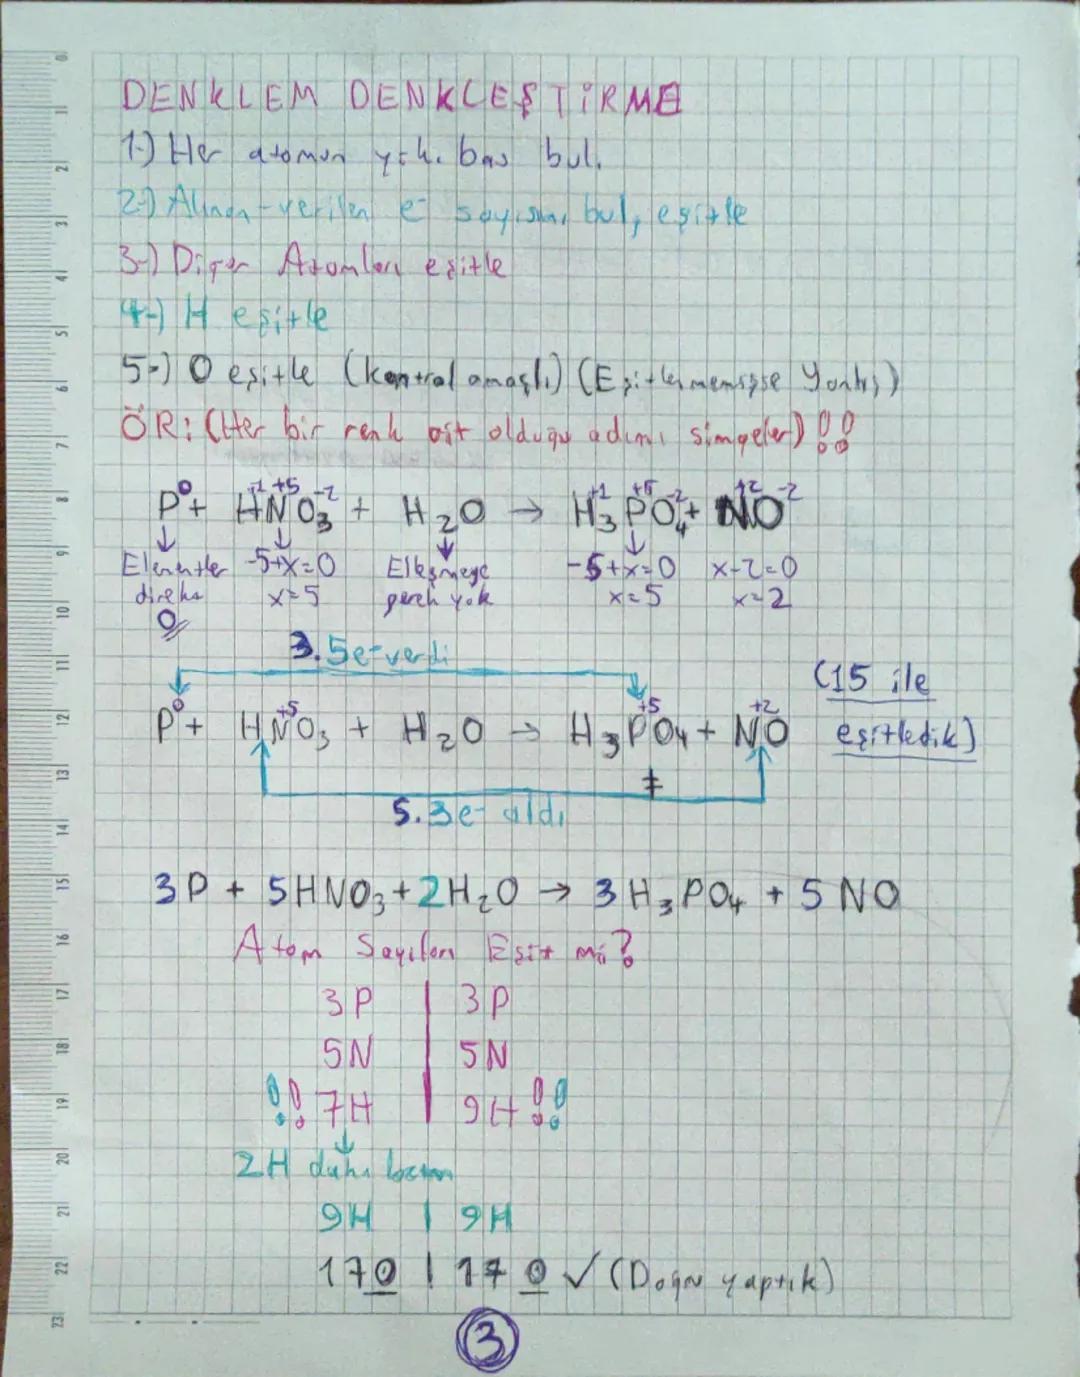 DENKLEM DENKLEŞTİRME
1-) Her atomun yük. bas bul.
2-) Alınan-verilen e⁻ sayısını bul, eşitle
3-) Diğer Atomları eşitle
4-) H eşitle
5-) O eşitle (kontrol amaçlı) (Eşitlenmemişse Yanlış)
ÖR: (Her bir renk ait olduğu adımı simgeler) !!
P⁰ + H⁺¹N⁺⁵O₃⁻² + H₂O → H₃⁺¹P⁺⁵O₄⁻² + N⁺²O⁻²
Elementler direkt 0
-5+x=0 x=5
Elleşmeye gerek yok
-5+x=0 x=5
x-2=0 x=2
3.5e⁻ verdi
(15 ile eşitledik)
P⁰ + HN⁺⁵O₃ + H₂O → H₃P⁺⁵O₄ + N⁺²O
≠
5.3e⁻ aldı
3P + 5HNO₃ + 2H₂O → 3H₃PO₄ + 5NO
Atom Sayıları Eşit mi?
3P | 3P
5N | 5N
!! 7H | 9H !!
2H daha lazım
9H | 9H
17O | 17O ✓ (Doğru yaptık)
3
0 1 2 3 4 5 6 7 8 9 10 11 12 13 14 15 16 17 18 19 20 21 22 23